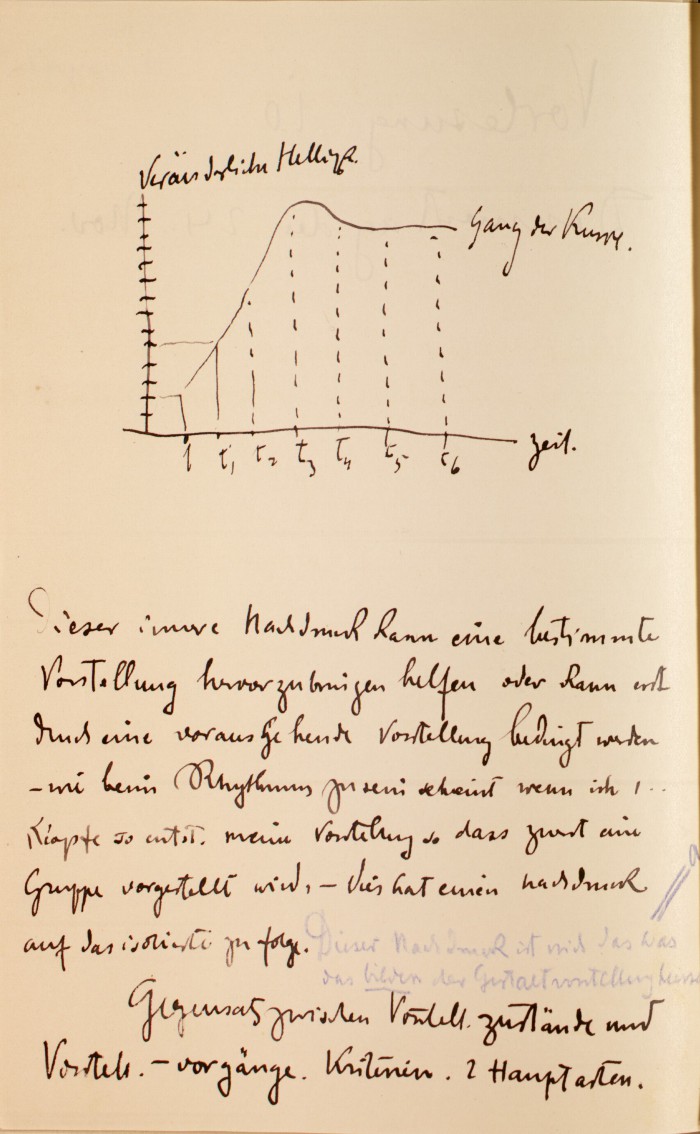 Veränderliche Helligk.
Gang der Kurve.
t t1 t2 t3 t4 t5 t6
Zeit.
Dieser innere Nachdruck kann eine bestimmte
Vorstellung hervorzubringen helfen oder kann erst
durch eine vorausgehende Vorstellung bedingt werden
– wie beim Rhythmus zu sein scheint wenn ich 1 . .
Klopfe so entst. meine Vorstellung so dass zuerst eine
Gruppe vorgestellt wird, – dies hat einen Nachdruck
auf das isolierte zu folge.
Dieser Nachdruck ist nicht das was
das bilden der Gestaltvorstellung
Gegensatz zwischen Vorstell. zustände und
Vorstell. – vorgänge. Kriterien. 2 Hauptarten.